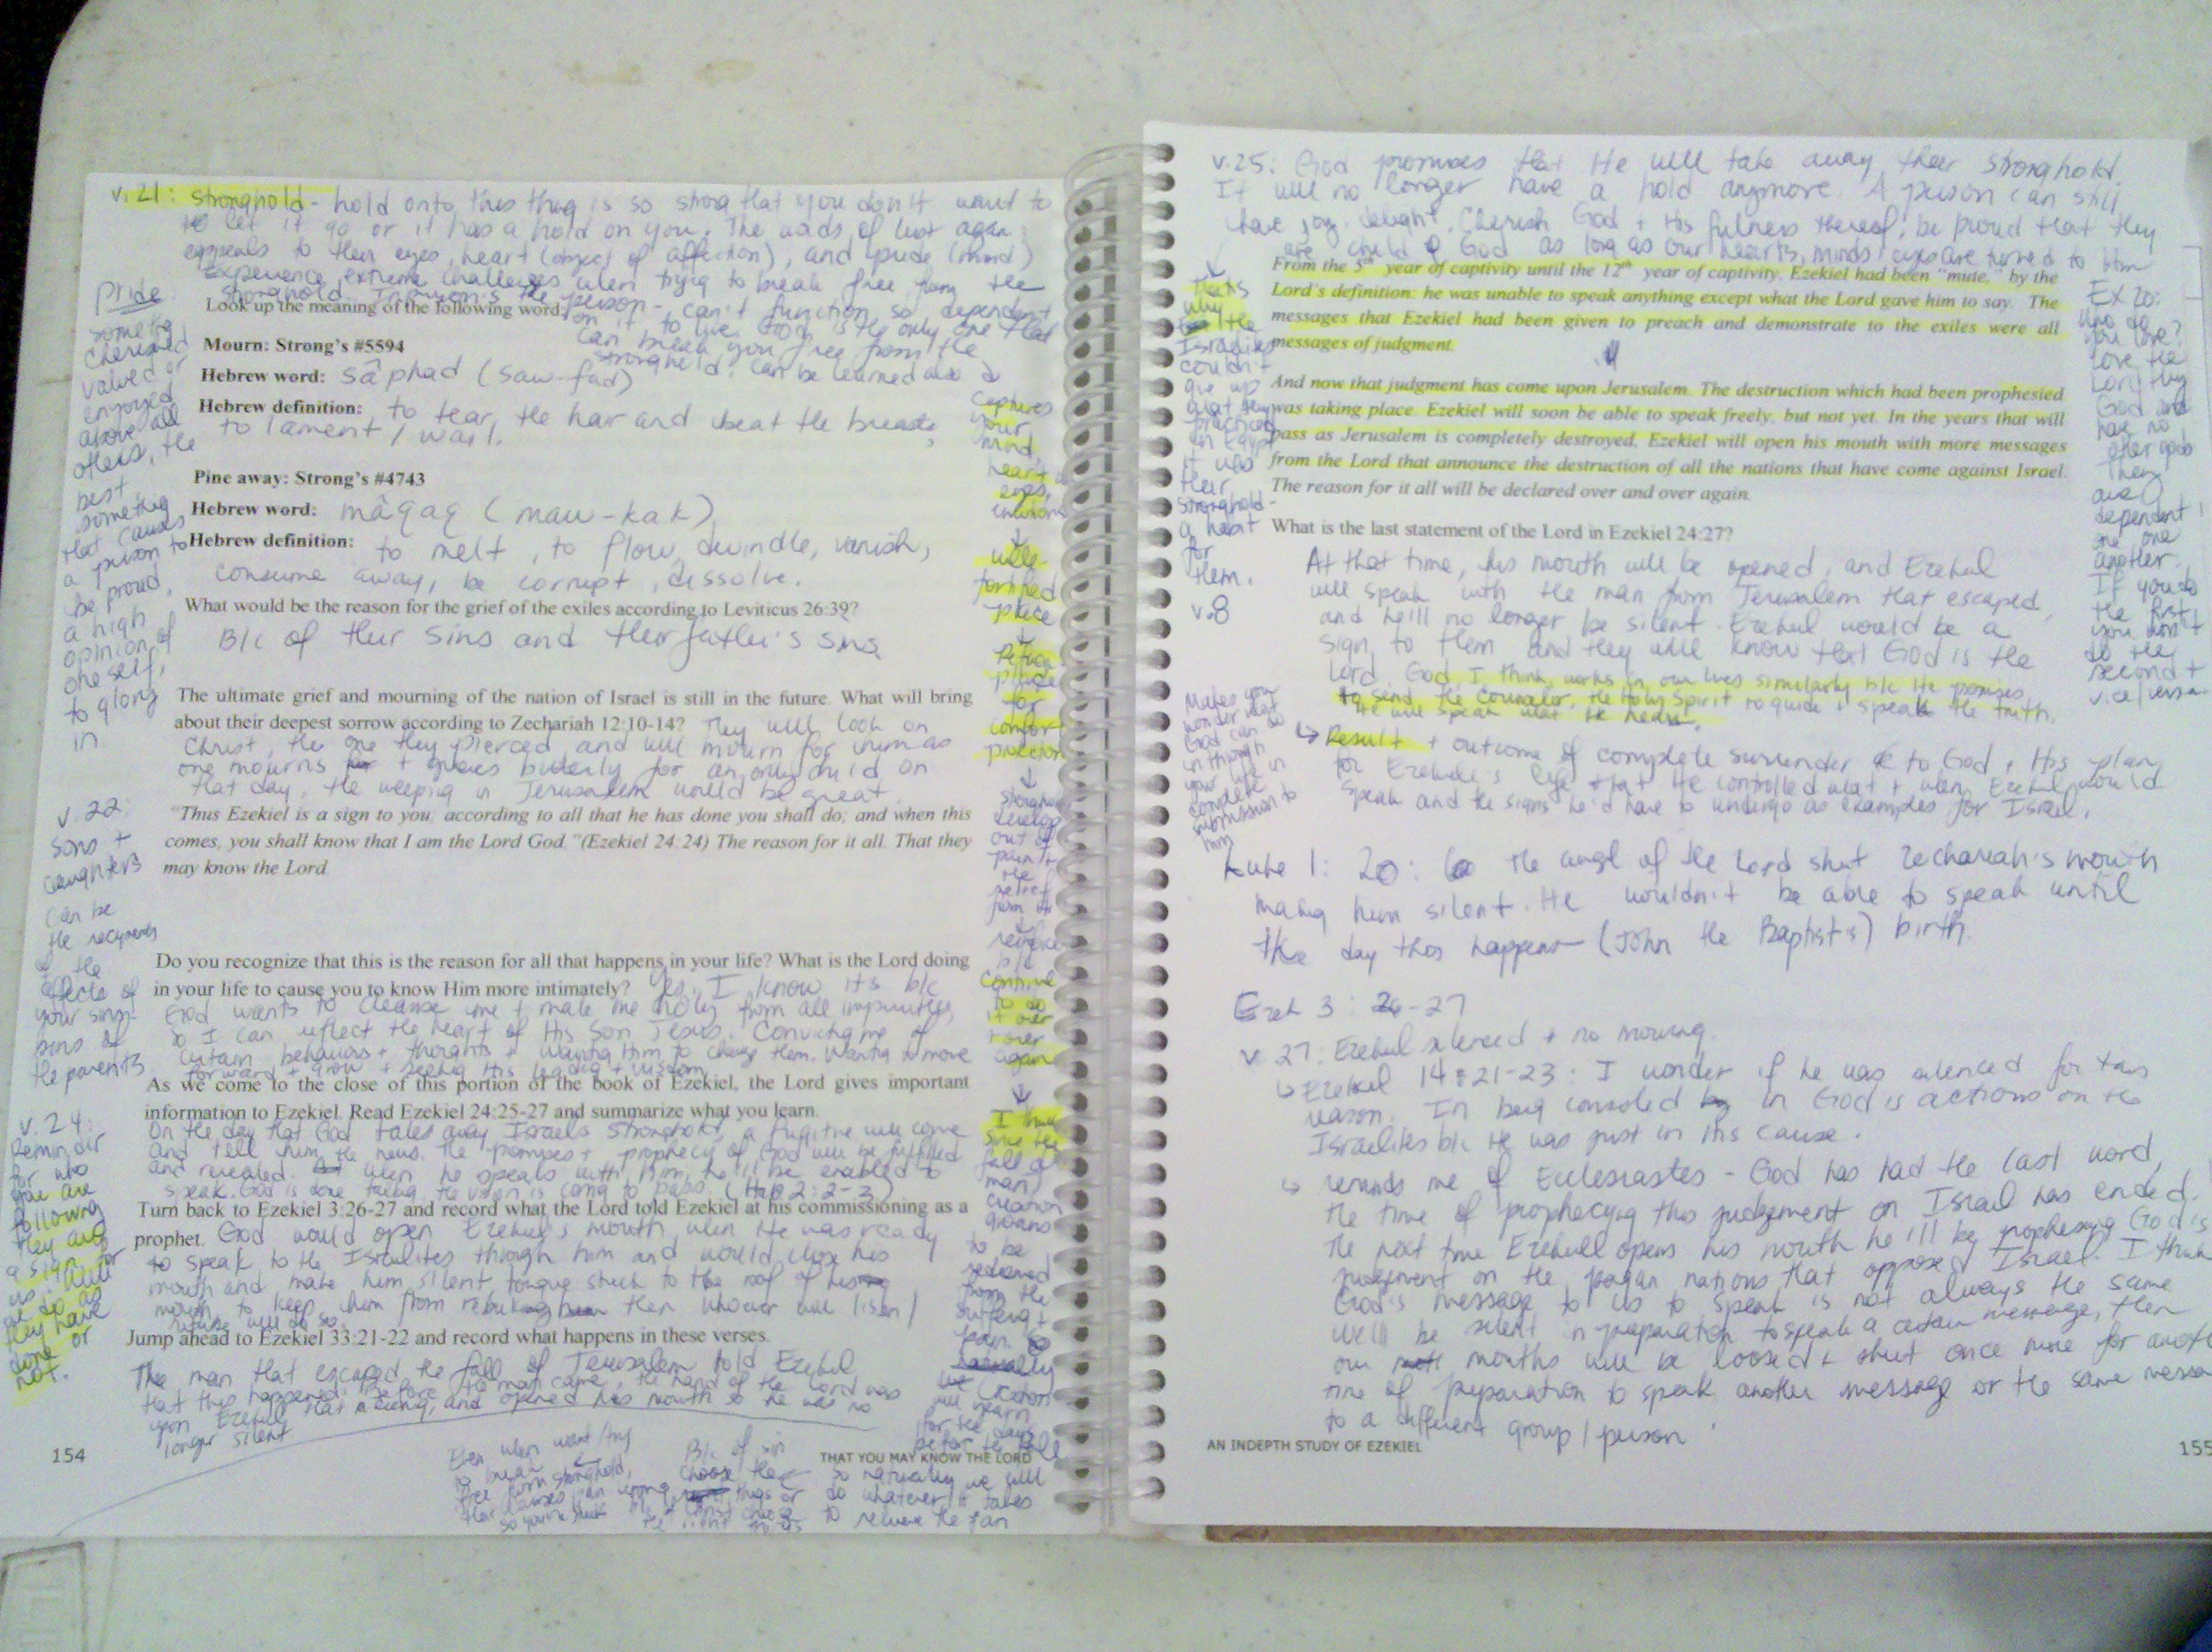 v. 21: stronghold - hold onto this thing is so strong that you don't want to
let it go or it has a hold on you. The words of lust again
appeals to their eyes, heart (object of affection), and pride (mind)
Experience extreme challenges when trying to break free from the
stronghold. the person - can't function, so dependent
on it to live. God is the only one that
can break you free from the
stronghold. Can be learned also
Look up the meaning of the following word:
Mourn: Strong's #5594
Hebrew word: sâphad (saw-fad)
Hebrew definition: to tear the hair and beat the breasts,
to lament, wail.
Pine away: Strong's #4743
Hebrew word: mâqaq (maw-kak)
Hebrew definition: to melt, to flow, dwindle, vanish,
consume away, be corrupt, dissolve.
What would be the reason for the grief of the exiles according to Leviticus 26:39?
B/c of their sins and their father's sins
The ultimate grief and mourning of the nation of Israel is still in the future. What will bring
about their deepest sorrow according to Zechariah 12:10-14? They will look on
Christ, the one they pierced, and will mourn for him as
one mourns + grieves bitterly for an only child on
that day, the weeping in Jerusalem would be great.
"Thus Ezekiel is a sign to you; according to all that he has done you shall do; and when this
comes, you shall know that I am the Lord God." (Ezekiel 24:24) The reason for it all. That they
may know the Lord.
Do you recognize that this is the reason for all that happens in your life? What is the Lord doing
in your life to cause you to know Him more intimately? Yes, I know it's b/c
God wants to cleanse me + make me holy from all impurities,
so I can reflect the heart of His Son Jesus. Convicting me of
certain behaviors + thoughts + wanting Him to change them. Wanting to move
forward + grow + seeking His leading + wisdom
As we come to the close of this portion of the book of Ezekiel, the Lord gives important
information to Ezekiel. Read Ezekiel 24:25-27 and summarize what you learn.
On the day that God takes away Israel's stronghold, a fugitive will come
and tell him the news. The promises + prophecy of God will be fulfilled
and revealed. when he speaks with him, he'll be enabled to
speak. God is done talking. The vision is going to pass (Hab. 2:2-3)
Turn back to Ezekiel 3:26-27 and record what the Lord told Ezekiel at his commissioning as a
prophet. God would open Ezekiel's mouth when He was ready
to speak to the Israelites through him and would close his
mouth and make him silent, tongue stuck to the roof of his
mouth to keep him from rebuking them whoever will listen/
refuse will do so.
Jump ahead to Ezekiel 33:21-22 and record what happens in these verses.
The man that escaped the fall of Jerusalem told Ezekiel
that this happened. Before the man came, the hand of the Lord was
upon Ezekiel that evening, and opened his mouth so he was no
longer silent
154
THAT YOU MAY KNOW THE LORD
Pride
something
cherished,
valued or
enjoyed
above all
others, the
best,
something
that causes
a person to
be proud,
a high
opinion of
oneself,
to glory
in.
v. 22:
sons +
daughters
can be
the recipients
of the
effects of
your sins.
sins of
the parents
v. 24:
Reminder
for who
you are
following
they are
a sign for
us.
we do as
they have
done or
not.
captures
your
mind,
heart &
eyes,
emotions
well-
fortified
place
Refuge
place
for
comfort
protection
stronghold
develop
out of
pain +
the
relief
from it
reinforce
b/c
continue
to do
it over
+ over
again
I think
since the
fall of
man,
creation
groans
to be
redeemed
from the
suffering +
pain.
creation
will yearn
for the days
before the fall
so naturally we will
do whatever it takes
to relieve the pain
Even when want/try
to break
free from stronghold,
B/c of sin
choose the
wrong things or
the right things
v. 25: God promises that He will take away their stronghold.
It will no longer have a hold anymore. A person can still
have joy, delight, cherish God + His fulness thereof, be proud that they
are child of God as long as our hearts, minds, eyes are turned to Him
From the 5th year of captivity until the 12th year of captivity, Ezekiel had been "mute," by the
Lord's definition: he was unable to speak anything except what the Lord gave him to say. The
messages that Ezekiel had been given to preach and demonstrate to the exiles were all
messages of judgment.
And now that judgment has come upon Jerusalem. The destruction which had been prophesied
was taking place. Ezekiel will soon be able to speak freely, but not yet. In the years that will
pass as Jerusalem is completely destroyed, Ezekiel will open his mouth with more messages
from the Lord that announce the destruction of all the nations that have come against Israel.
The reason for it all will be declared over and over again.
What is the last statement of the Lord in Ezekiel 24:27?
At that time, his mouth will be opened, and Ezekiel
will speak with the man from Jerusalem that escaped,
and he'll no longer be silent. Ezekiel would be a
sign to them and they will know that God is the
Lord. God I think, works in our lives similarly b/c He promises
to send the Counselor, the Holy Spirit to guide + speak the truth.
He will speak what He hears.
↳ Result + outcome of complete surrender to God + His plan
for Ezekiel's life that He controlled what + when Ezekiel would
speak and the signs he'd have to undergo as examples for Israel.
Luke 1: 20: the angel of the Lord shut Zechariah's mouth
making him silent. He wouldn't be able to speak until
the day this happens (John the Baptist's) birth.
Ezek 3: 26-27
v 27: Ezekiel silenced + no moving.
↳ Ezekiel 14:21-23: I wonder if he was silenced for this
reason. In being consoled in God's actions on the
Israelites b/c He was just in His cause.
↳ reminds me of Ecclesiastes - God has had the last word,
the time of prophecying this judgement on Israel has ended.
The next time Ezekiel opens his mouth he'll be prophesying God's
judgement on the pagan nations that opposed Israel. I think
God's message to us to speak is not always the same
we'll be silent in preparation to speak a certain message, then
our mouths will be loosed + shut once more for another
time of preparation to speak another message or the same message
to a different group/person.
AN INDEPTH STUDY OF EZEKIEL
155
That's
why
the
Israelites
couldn't
give up
what they
practiced
in Egypt
it was
their
stronghold -
a habit
for
them.
v. 8
Makes you
wonder what
God can do
in/through
your life in
complete
submission to
Him
Ex 20:
who do
you love?
Love the
Lord thy
God and
have no
other gods
They
are
dependent
on one
another.
If you do
the first,
you won't
do the
second +
vice/versa.